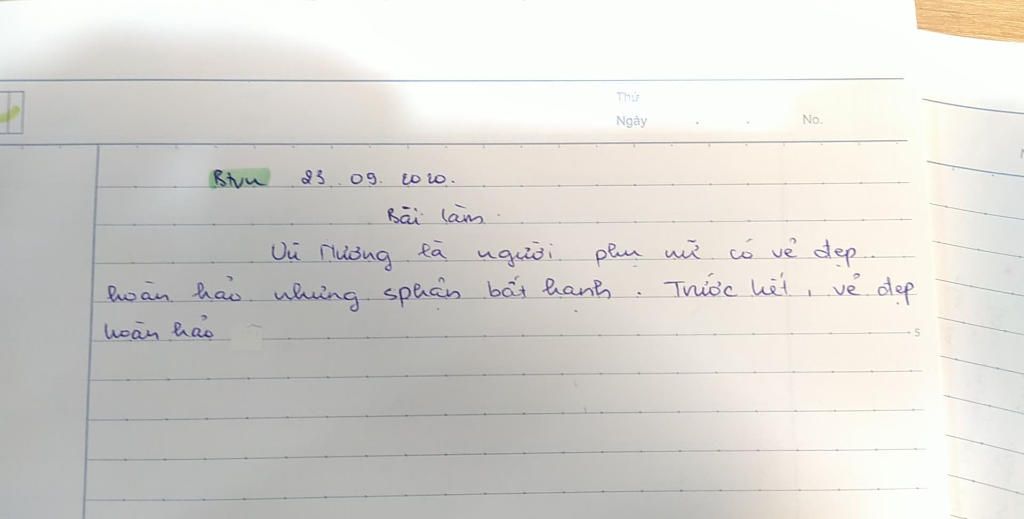 Thứ
Ngày . . No.
Btvn 23. 09. 2020.
Bài làm.
Vũ Nương là người phụ nữ có vẻ đẹp
hoàn hảo nhưng sphận bất hạnh. Trước hết, vẻ đẹp
hoàn hảo
5